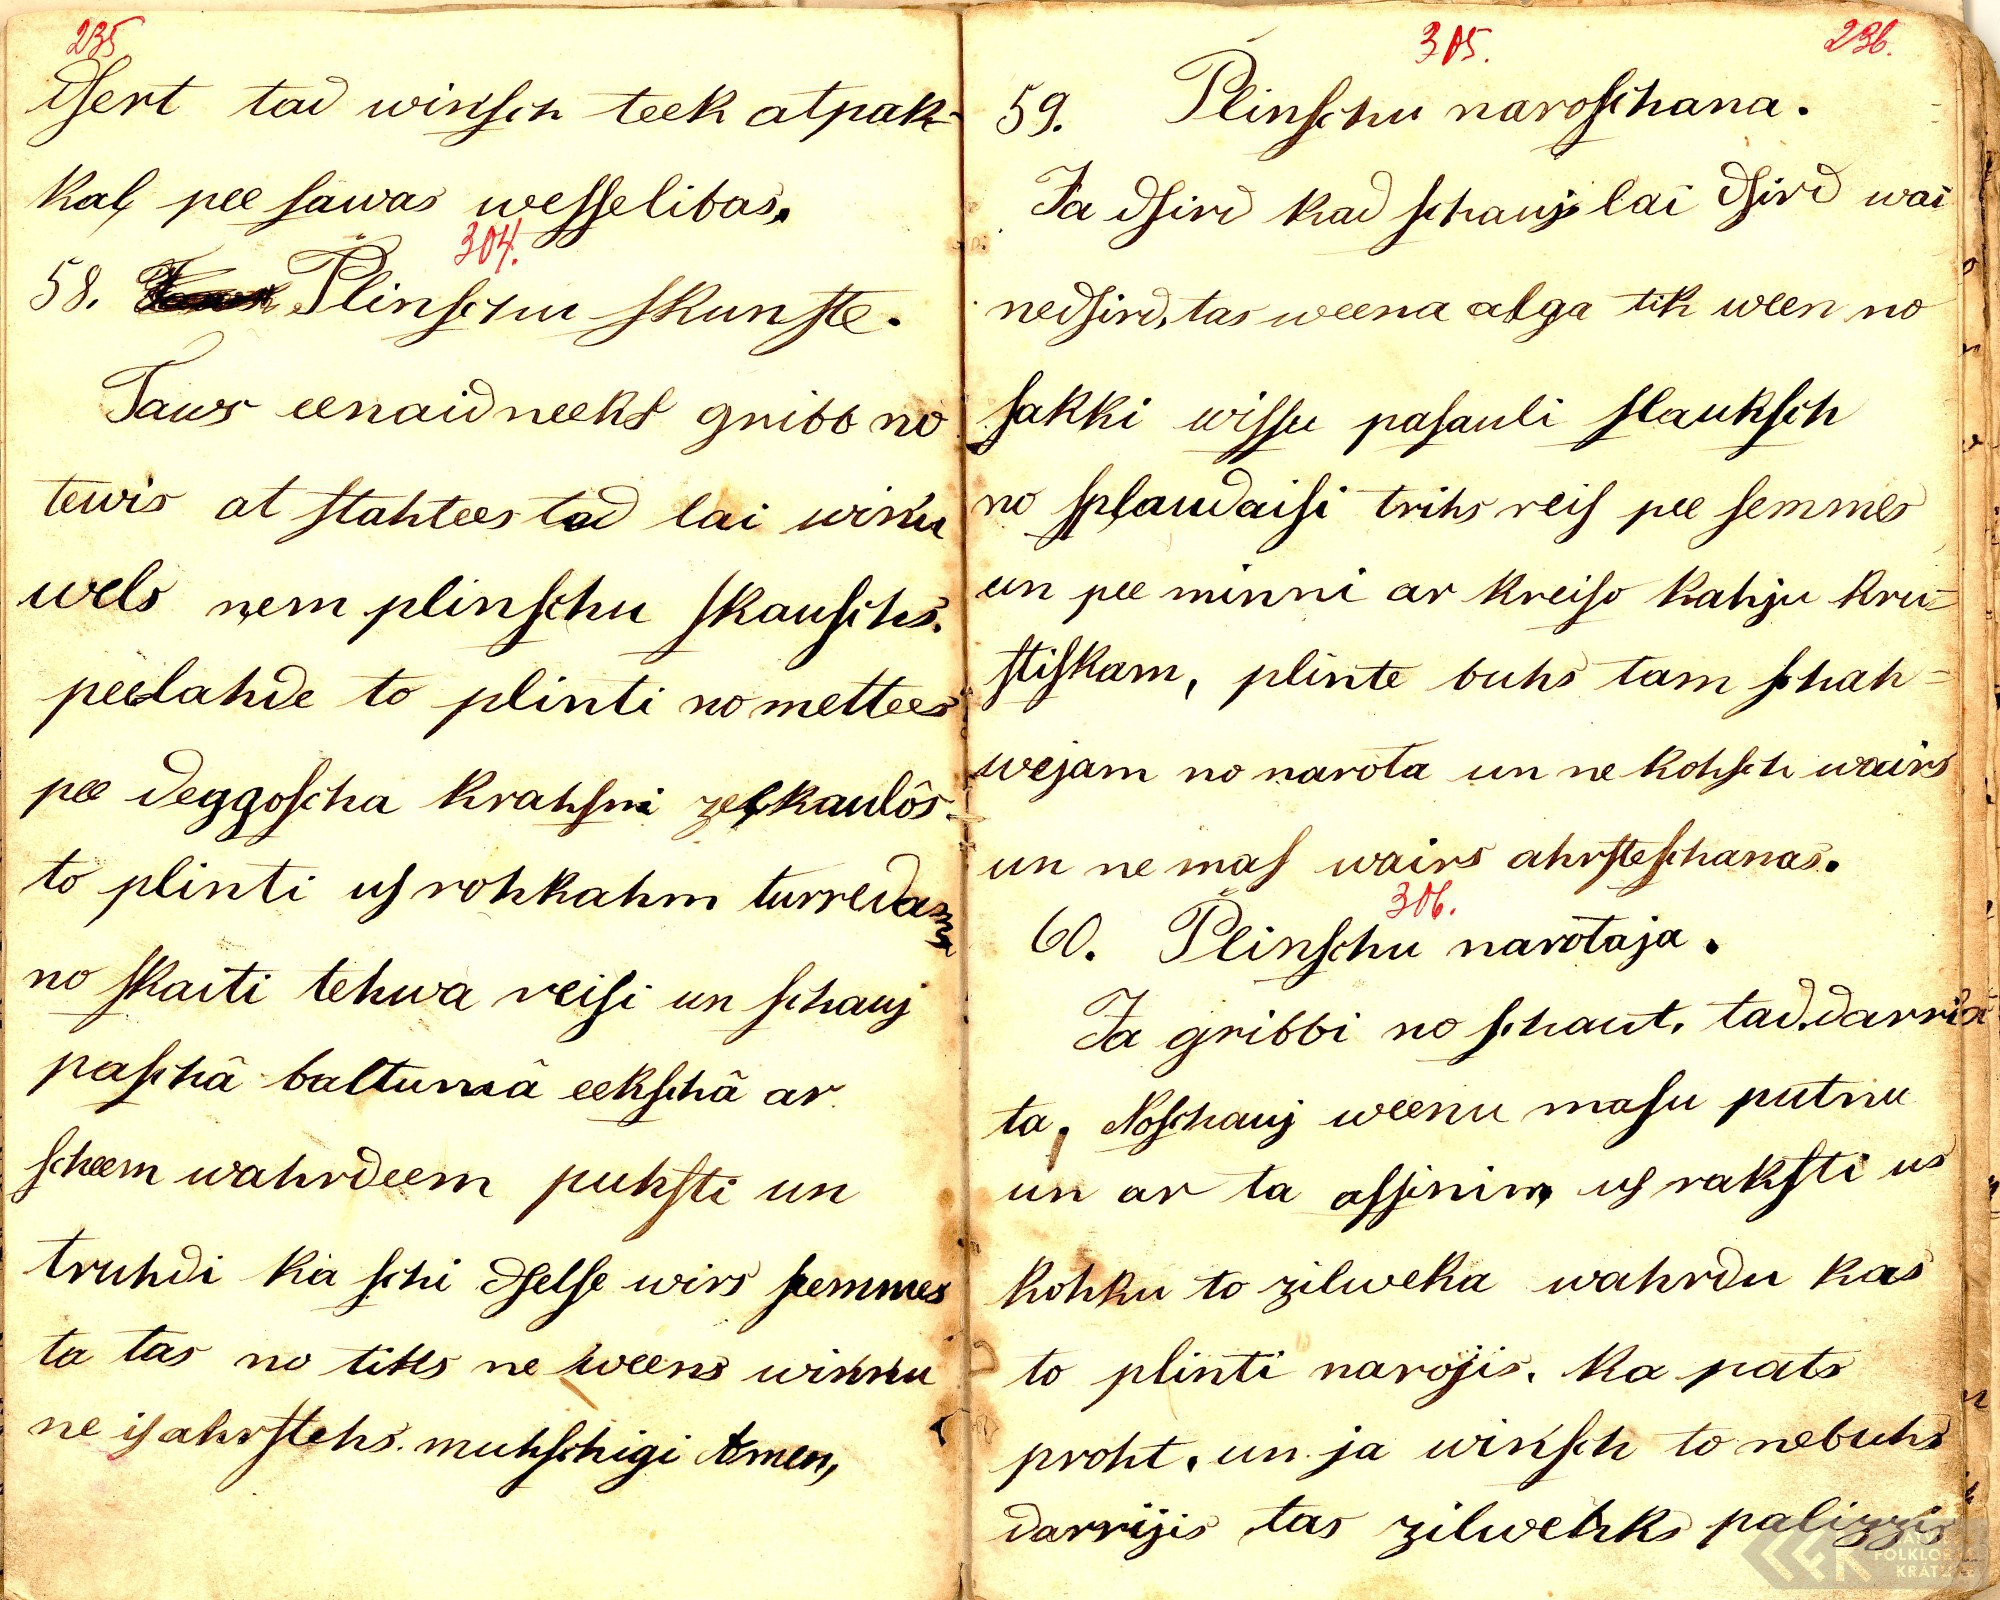 235
dſert tad winſch teek atpak-
kaļ pee ſawas weſſelibas.
304.
58. Plinſchu ſkunſte.
Taws eenaidneeks gribb no
tewis at ſtahtees tad lai winu
wels ņem plinſchu ſkauſchs.
peelahde to plinti no mettees
pee deggoſcha krahſni zeļkaulôs.
to plinti uſ rohkahm turredams
no ſkaiti tehwa reiſi un ſchauj
paſchâ baltumâ eekſchâ ar
ſcheem wahrdeem pukſti un
truhdi ka ſchi dſelſe wirs ſemmes
ta tas no tiks ne weens winnu
ne iſahrſtehs. muhſchigi Amen,
305. 236.
59. Plinſchu naroſchana.
Ja dſird kad ſchauj lai dſird wai
nedſird, tas weena alga tik ween no
ſakki wiſſu paſauli ſlaukſch
no ſplaudaiſi trihs reiſ pee ſemmes
un pee minni ar kreiſo kahju kru-
ſtiſkam, plinte buhs tam ſchah-
wejam no narota un ne kohſch wairs
un ne maſ wairs ahrſteſchanas.
306.
60. Plinſchu narotaja.
Ja gribbi no ſchaut, tad darri
ta, Noſchauj weenu maſu putnu
un ar ta aſſinim uſ rakſti us
kohku to zilweka wahrdu kas
to plinti narojis. ka pats
proht, un ja winſch to nebuhs
darrijis tas zilwehks palizzis